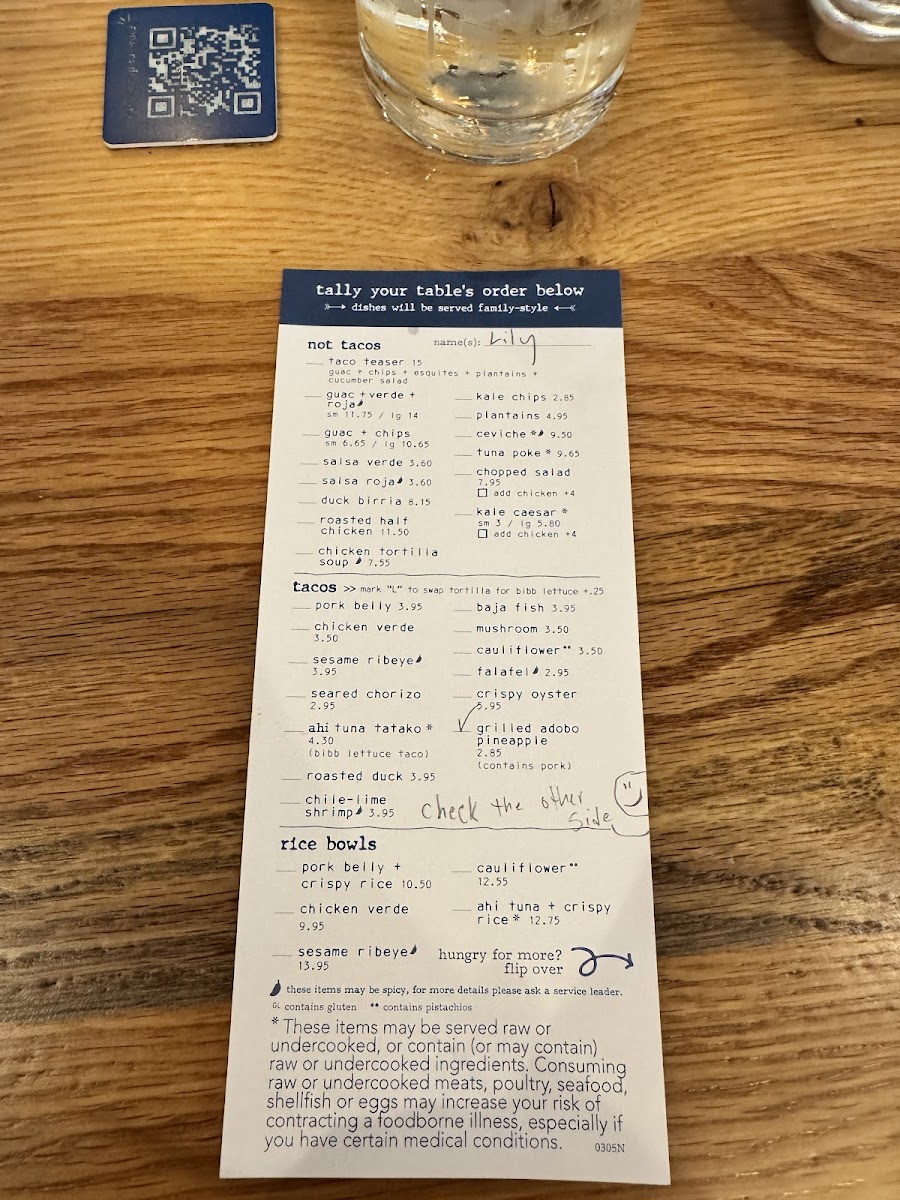 tally your table's order below
dishes will be served family-style
not tacos
name(s): Lily
taco teaser 15
guac + chips + esquites + plantains +
cucumber salad
guac + verde +
roja
sm 11.75 / lg 14
guac + chips
sm 6.65 / lg 10.65
salsa verde 3.60
salsa roja 3.60
duck birria 8.15
roasted half
chicken 11.50
chicken tortilla
soup 7.55
kale chips 2.85
plantains 4.95
ceviche * 9.50
tuna poke * 9.65
chopped salad
7.95
add chicken +4
kale caesar *
sm 3 / lg 5.80
add chicken +4
tacos >> mark "L" to swap tortilla for bibb lettuce +.25
pork belly 3.95
chicken verde
3.50
sesame ribeye
3.95
seared chorizo
2.95
ahi tuna tatako *
4.30
(bibb lettuce taco)
roasted duck 3.95
chile-lime
shrimp 3.95
baja fish 3.95
mushroom 3.50
cauliflower** 3.50
falafel 2.95
crispy oyster
5.95
grilled adobo
pineapple
2.85
(contains pork)
check the other
side
rice bowls
pork belly +
crispy rice 10.50
chicken verde
9.95
sesame ribeye
13.95
cauliflower**
12.55
ahi tuna + crispy
rice* 12.75
hungry for more?
flip over
these items may be spicy, for more details please ask a service leader.
GL contains gluten ** contains pistachios
* These items may be served raw or
undercooked, or contain (or may contain)
raw or undercooked ingredients. Consuming
raw or undercooked meats, poultry, seafood,
shellfish or eggs may increase your risk of
contracting a foodborne illness, especially if
you have certain medical conditions.
0305N